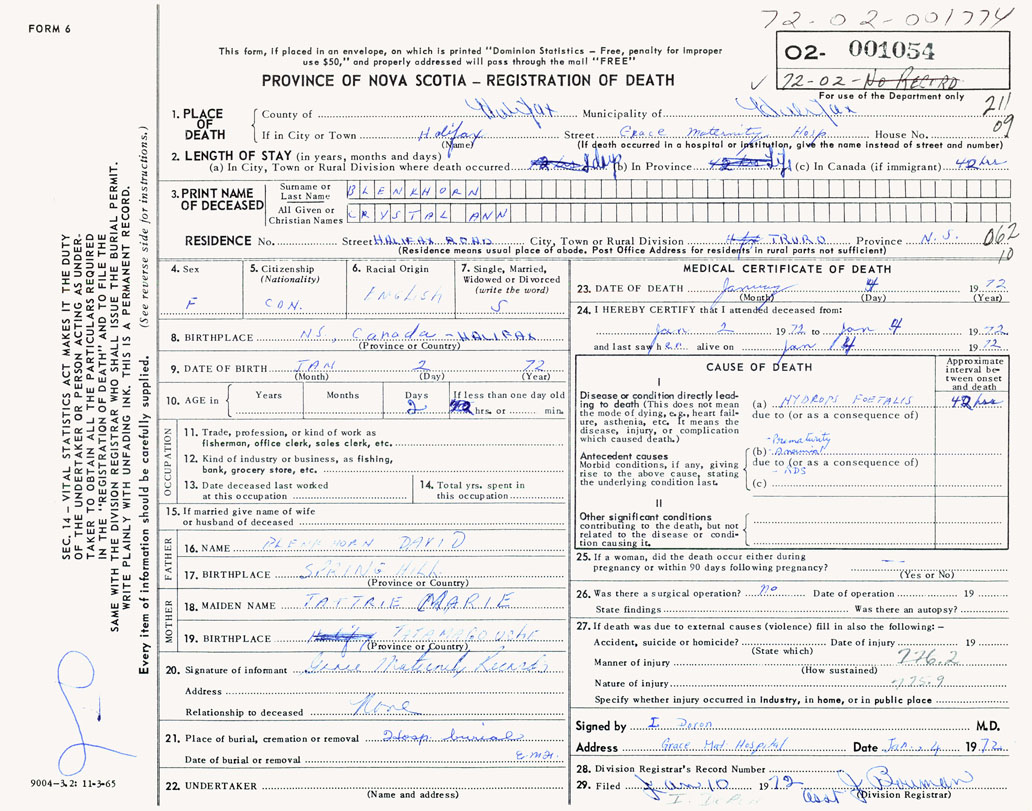 72-02-001774
FORM 6
This form, if placed in an envelope, on which is printed "Dominion Statistics – Free, penalty for improper
use $50," and properly addressed will pass through the mail "FREE"
PROVINCE OF NOVA SCOTIA – REGISTRATION OF DEATH
O2- 001054
✓ 72-02-No Record
For use of the Department only
211
09
1. PLACE OF DEATH
County of Halifax Municipality of Halifax
If in City or Town Halifax Street Grace Maternity Hosp House No.
(Name) (If death occurred in a hospital or institution, give the name instead of street and number)
2. LENGTH OF STAY (in years, months and days)
(a) In City, Town or Rural Division where death occurred 2 days (b) In Province Life (c) In Canada (if immigrant) 42 hrs
3. PRINT NAME OF DECEASED
Surname or Last Name BLENKHORN
All Given or Christian Names CRYSTAL ANN
062
10
RESIDENCE No. Street HALIFAX ROAD City, Town or Rural Division TRURO Province N.S.
(Residence means usual place of abode. Post Office Address for residents in rural parts not sufficient)
4. Sex
F
5. Citizenship
(Nationality)
CDN.
6. Racial Origin
ENGLISH
7. Single, Married,
Widowed or Divorced
(write the word)
S
8. BIRTHPLACE N.S., Canada - HALIFAX
(Province or Country)
9. DATE OF BIRTH JAN 2 72
(Month) (Day) (Year)
10. AGE in Years Months Days 2 If less than one day old hrs. or min.
OCCUPATION
11. Trade, profession, or kind of work as
fisherman, office clerk, sales clerk, etc.
12. Kind of industry or business, as fishing,
bank, grocery store, etc.
13. Date deceased last worked
at this occupation
14. Total yrs. spent in
this occupation
15. If married give name of wife
or husband of deceased
FATHER
16. NAME BLENKHORN DAVID
17. BIRTHPLACE SPRING HILL
(Province or Country)
MOTHER
18. MAIDEN NAME TATTRIE MARIE
19. BIRTHPLACE Halifax TATAMAGOUCHE
(Province or Country)
20. Signature of informant Grace Maternity Records
Address
Relationship to deceased None
21. Place of burial, cremation or removal Hosp burial
Date of burial or removal
22. UNDERTAKER
(Name and address)
MEDICAL CERTIFICATE OF DEATH
23. DATE OF DEATH January 4 1972
(Month) (Day) (Year)
24. I HEREBY CERTIFY that I attended deceased from:
Jan 2 1972 to Jan 4 1972
and last saw her alive on Jan 4 1972
CAUSE OF DEATH
Approximate
interval be-
tween onset
and death
I
Disease or condition directly lead-
ing to death (This does not mean
the mode of dying, e.g., heart fail-
ure, asthenia, etc. It means the
disease, injury, or complication
which caused death.)
(a) HYDROPS FOETALIS 42 hrs
due to (or as a consequence of)
Antecedent causes
Morbid conditions, if any, giving
rise to the above cause, stating
the underlying condition last.
- Prematurity
(b)
due to (or as a consequence of)
- RDS
(c)
II
Other significant conditions
contributing to the death, but not
related to the disease or condi-
tion causing it.
25. If a woman, did the death occur either during
pregnancy or within 90 days following pregnancy? —
(Yes or No)
26. Was there a surgical operation? No Date of operation 19
State findings Was there an autopsy?
27. If death was due to external causes (violence) fill in also the following: –
Accident, suicide or homicide? Date of injury 19
(State which)
Manner of injury 776.2
(How sustained)
Nature of injury 775.9
Specify whether injury occurred in Industry, in home, or in public place
Signed by I. Doron M.D.
Address Grace Mat Hospital Date Jan. 4 1972
28. Division Registrar's Record Number
29. Filed Jan 10 1972 Asst J Bowman
(Division Registrar)
SEC. 14 – VITAL STATISTICS ACT MAKES IT THE DUTY
OF THE UNDERTAKER OR PERSON ACTING AS UNDER-
TAKER TO OBTAIN ALL THE PARTICULARS REQUIRED
IN THE "REGISTRATION OF DEATH" AND TO FILE THE
SAME WITH THE DIVISION REGISTRAR WHO SHALL ISSUE THE BURIAL PERMIT.
WRITE PLAINLY WITH UNFADING INK. THIS IS A PERMANENT RECORD.
Every item of information should be carefully supplied. (See reverse side for instructions.)
9004-3.2: 11-3-65